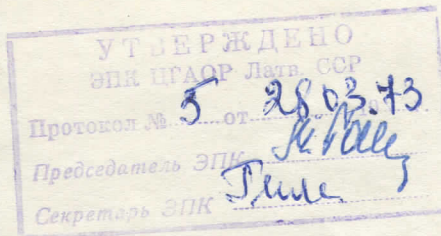 УТВЕРЖДЕНО
ЭПК ЦГАОР Латв. ССР
Протокол № 5 от 28.03.73
Председатель ЭПК
Секретарь ЭПК